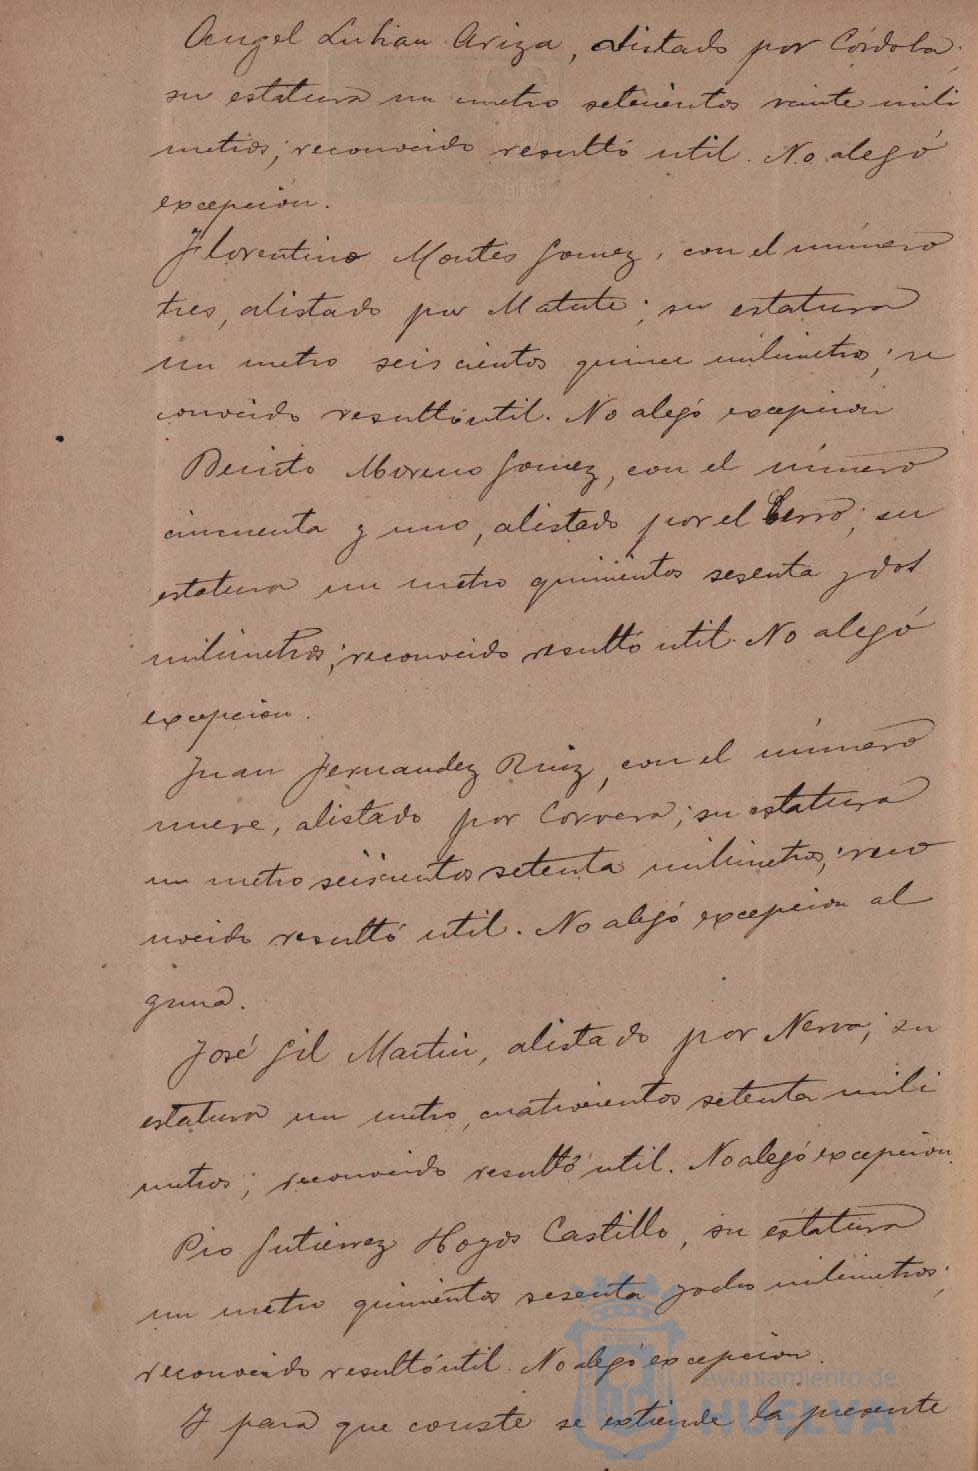 Angel Luhian Ariza, alistado por Córdoba,
su estatura un metro setecientos veinte mili
metros; reconocido resultó util. No alegó
excepcion.
Florentino Montes Gomez, con el número
tres, alistado por Matute; su estatura
un metro seiscientos quince milimetros; re
conocido resultó util. No alegó excepcion
Benito Moreno Gomez, con el número
cincuenta y uno, alistado por el Cerro; su
estatura un metro quinientos sesenta y dos
milimetros; reconocido resultó util. No alegó
excepcion.
Juan Fernandez Ruiz, con el número
nueve, alistado por Corvera; su estatura
un metro seiscientos setenta milimetros; reco
nocido resultó util. No alegó excepcion al
guna.
José Gil Martin, alistado por Nerva; su
estatura un metro, cuatrocientos setenta mili
metros; reconocido resultó util. No alegó excepcion.
Pio Gutierrez Hoyos Castillo, su estatura
un metro quinientos sesenta y dos milimetros;
reconocido resultó util. No alegó excepcion.
Y para que conste se extiende la presente
Ayuntamiento de
HUELVA